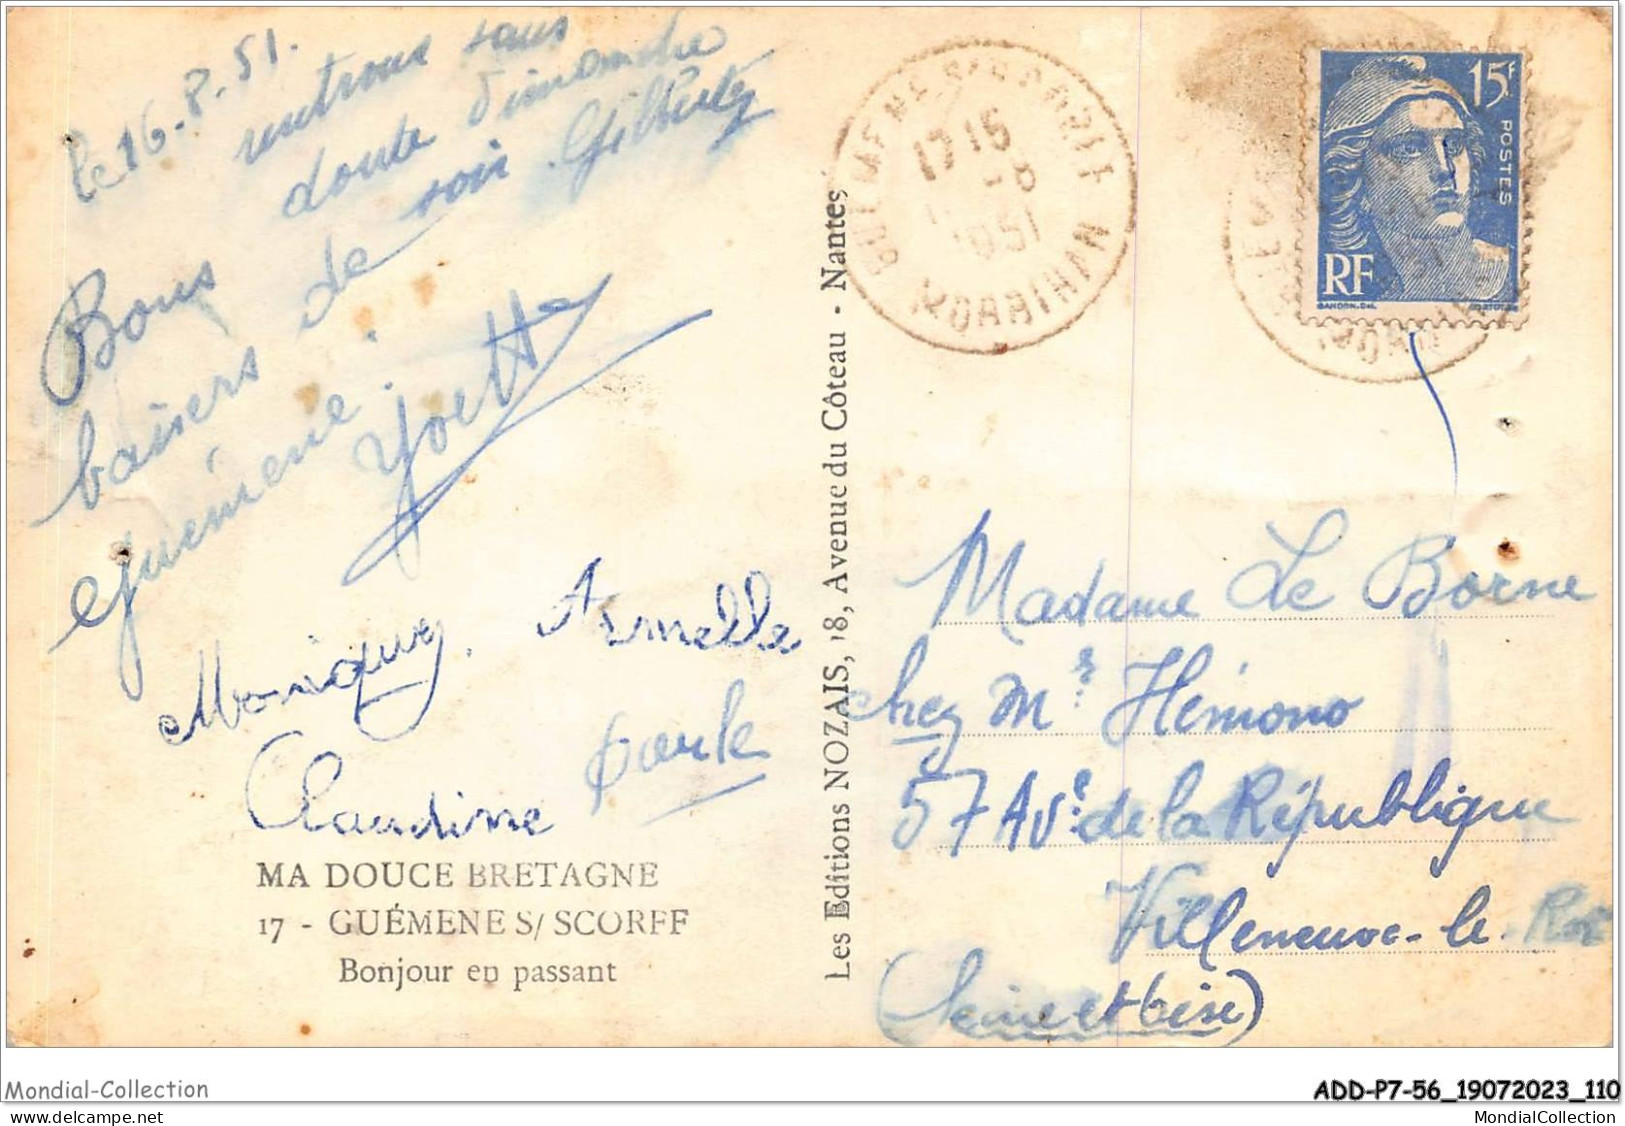 le 16-8-51.
rentrons sans
doute dimanche
soir. Gilberte
Bons
baisers de
Guémené.
Yvette
Monique, Armelle
Claudine
MA DOUCE BRETAGNE
17 - GUÉMENE S/ SCORFF
Bonjour en passant
Les Editions NOZAIS, 18, Avenue du Côteau - Nantes
17 15
1951
MORBIHAN
15F
POSTES
RF
Madame Le Borne
chez Mr Hémono
57 Ave de la République
Villeneuve-le-Roi
(Seine et Oise)
Mondial-Collection
ADD-P7-56_19072023_110
www.delcampe.net
MondialCollection